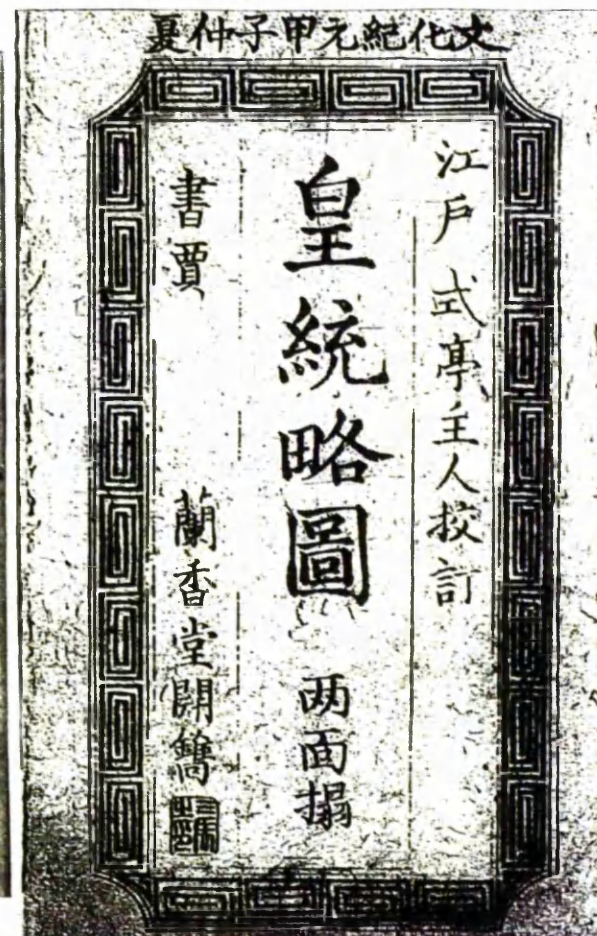 文化紀元甲子仲夏
江戸 式亭主人挍訂
皇統略圖 两面搨
書賈 蘭香堂開鐫